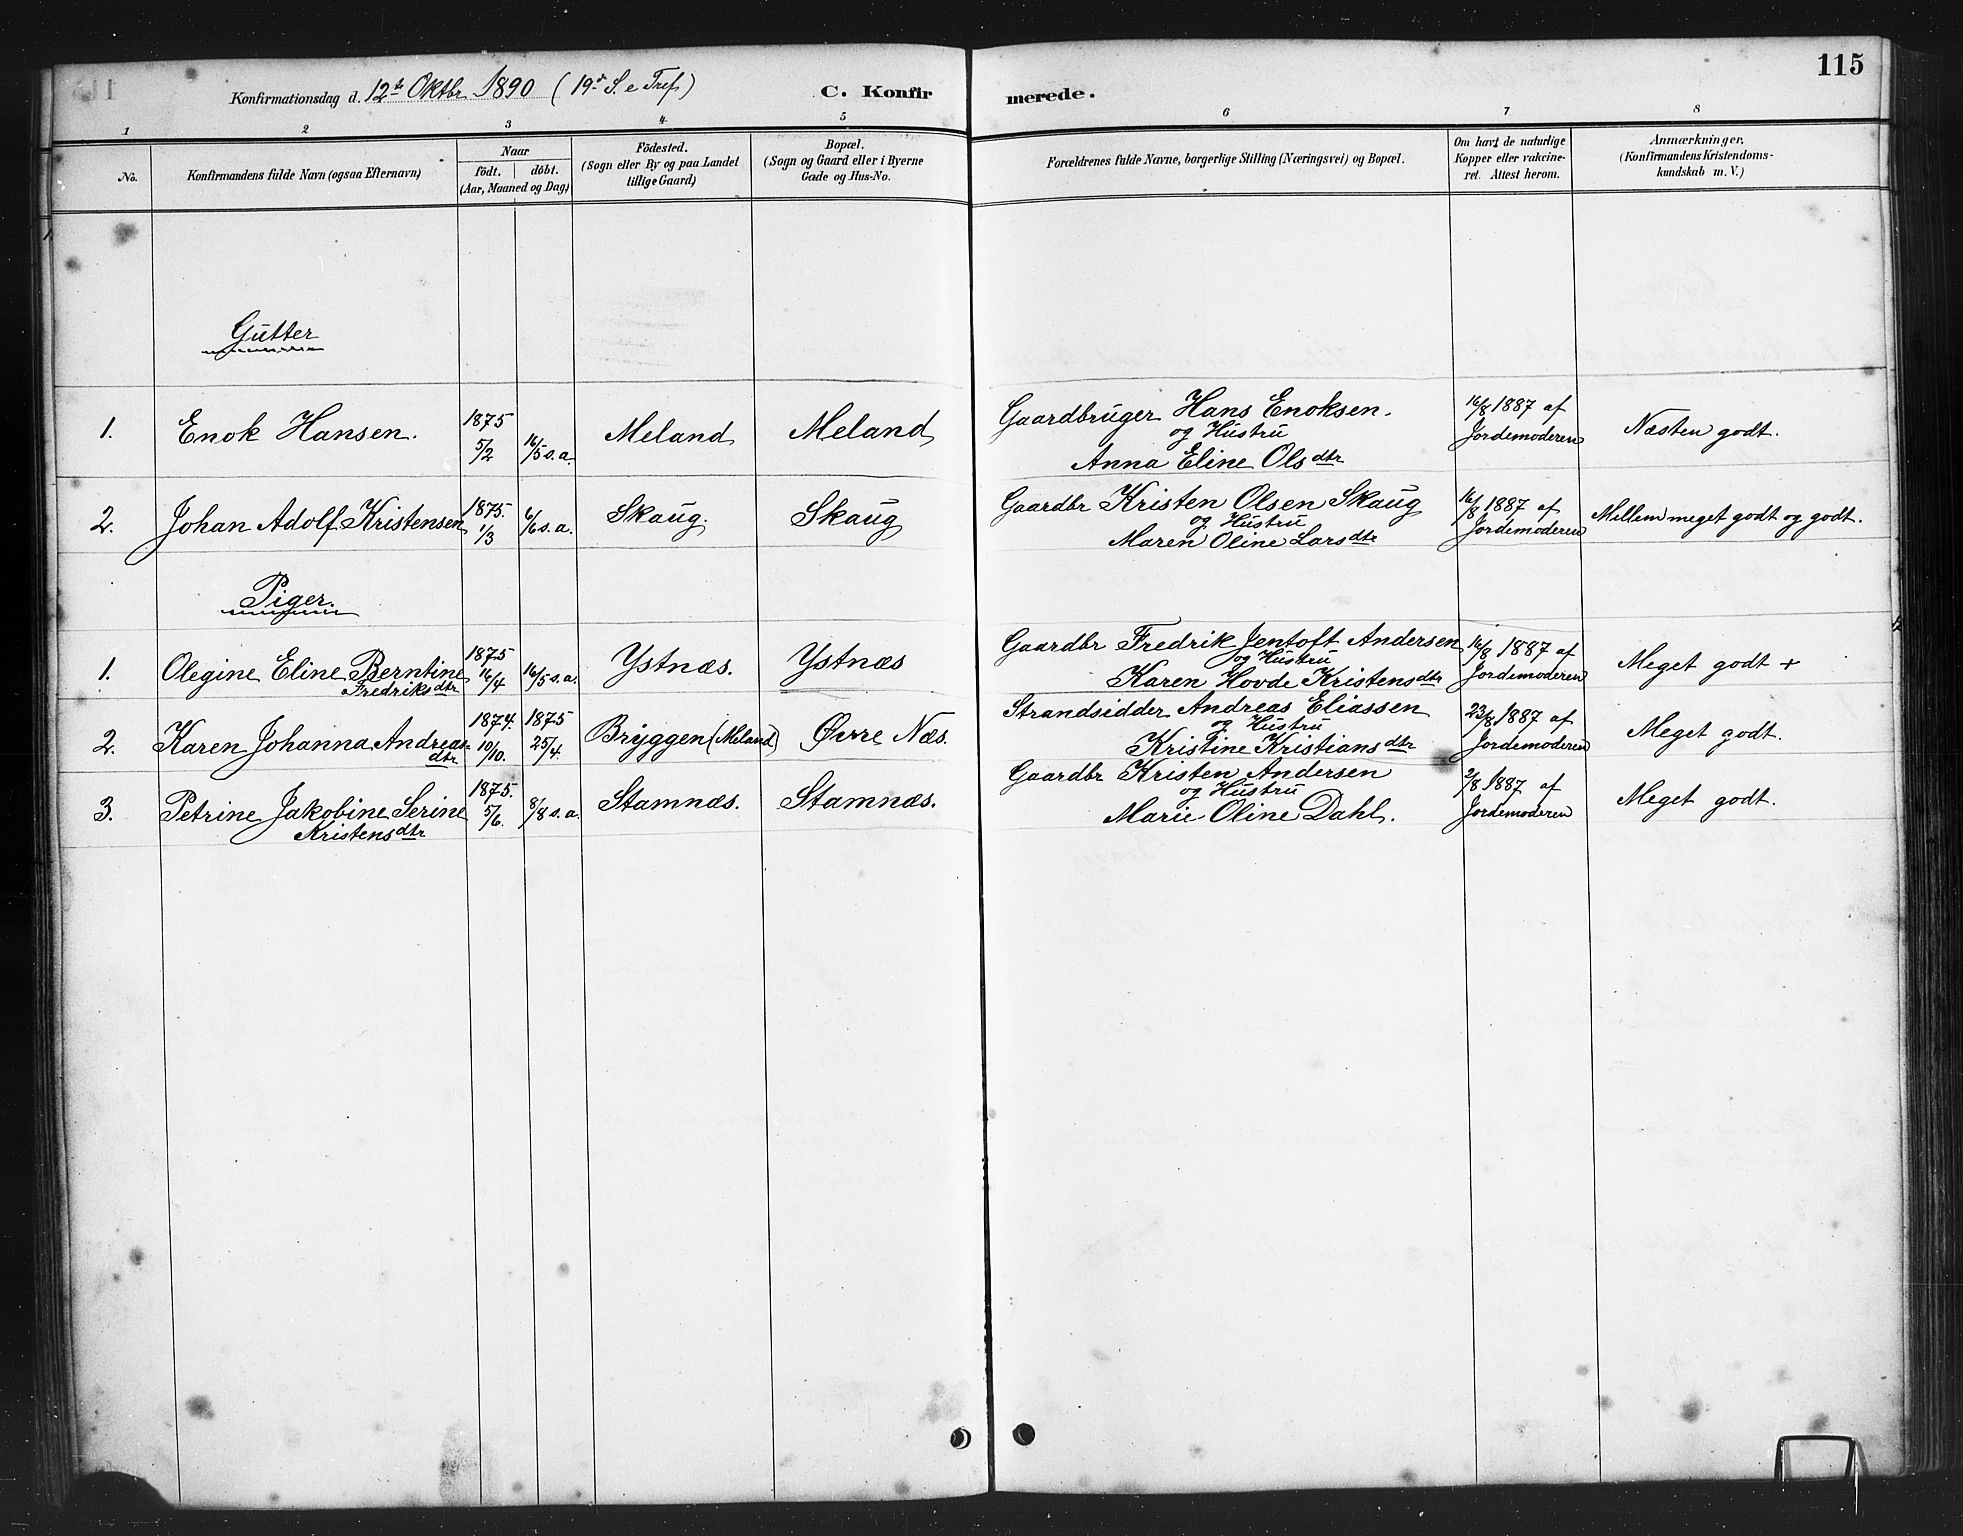 115
Konfirmationsdag d. 12te Oktbr 1890 (19de S. e Tref)
C. Konfirmerede.
1 2 3 4 5 6 7 8
No.
Konfirmandens fulde Navn (ogsaa Efternavn)
Naar
födt. döbt.
(Aar, Maaned og Dag)
Födested.
(Sogn eller By og paa Landet
tillige Gaard)
Bopæl.
(Sogn og Gaard eller i Byerne
Gade og Hus-No.
Forældrenes fulde Navne, borgerlige Stilling (Næringsvei) og Bopæl.
Om havt de naturlige
Kopper eller vakcine-
ret. Attest herom.
Anmærkninger.
(Konfirmandens Kristendoms-
kundskab m. V.)
Gutter
1. Enok Hansen. 1875 5/2 16/5 s.a. Meland Meland
Gaardbruger Hans Enoksen.
og Hustru
Anna Eline Olsdtr
16/8 1887 af
Jordemoderen
Næsten godt.
2. Johan Adolf Kristensen 1875. 1/3 6/6 s.a. Skaug. Skaug
Gaardbr Kristen Olsen Skaug
og Hustru
Maren Oline Larsdtr
16/8 1887 af
Jordemoderen
Mellem meget godt og godt.
Piger.
1. Olegine Eline Berntine
Fredriksdtr
1875 16/4 16/5 s.a. Ystnæs. Ystnæs
Gaardbr Fredrik Jentoft Andersen
og Hustru
Karen Hovde Kristensdtr
16/8 1887 af
Jordemoderen
Meget godt +
2. Karen Johanna Andreas-
dtr
1874. 10/10. 1875 25/4. Bryggen (Meland) Øvre Næs.
Strandsidder Andreas Eliassen
og Hustru
Kristine Kristiansdtr
23/8 1887 af
Jordemoderen
Meget godt.
3. Petrine Jakobine Serine
Kristensdtr
1875. 5/6. 8/8 s.a. Stamnæs. Stamnæs.
Gaardbr Kristen Andersen
og Hustru
Marie Oline Dahl.
2/8 1887 af
Jordemoderen
Meget godt.